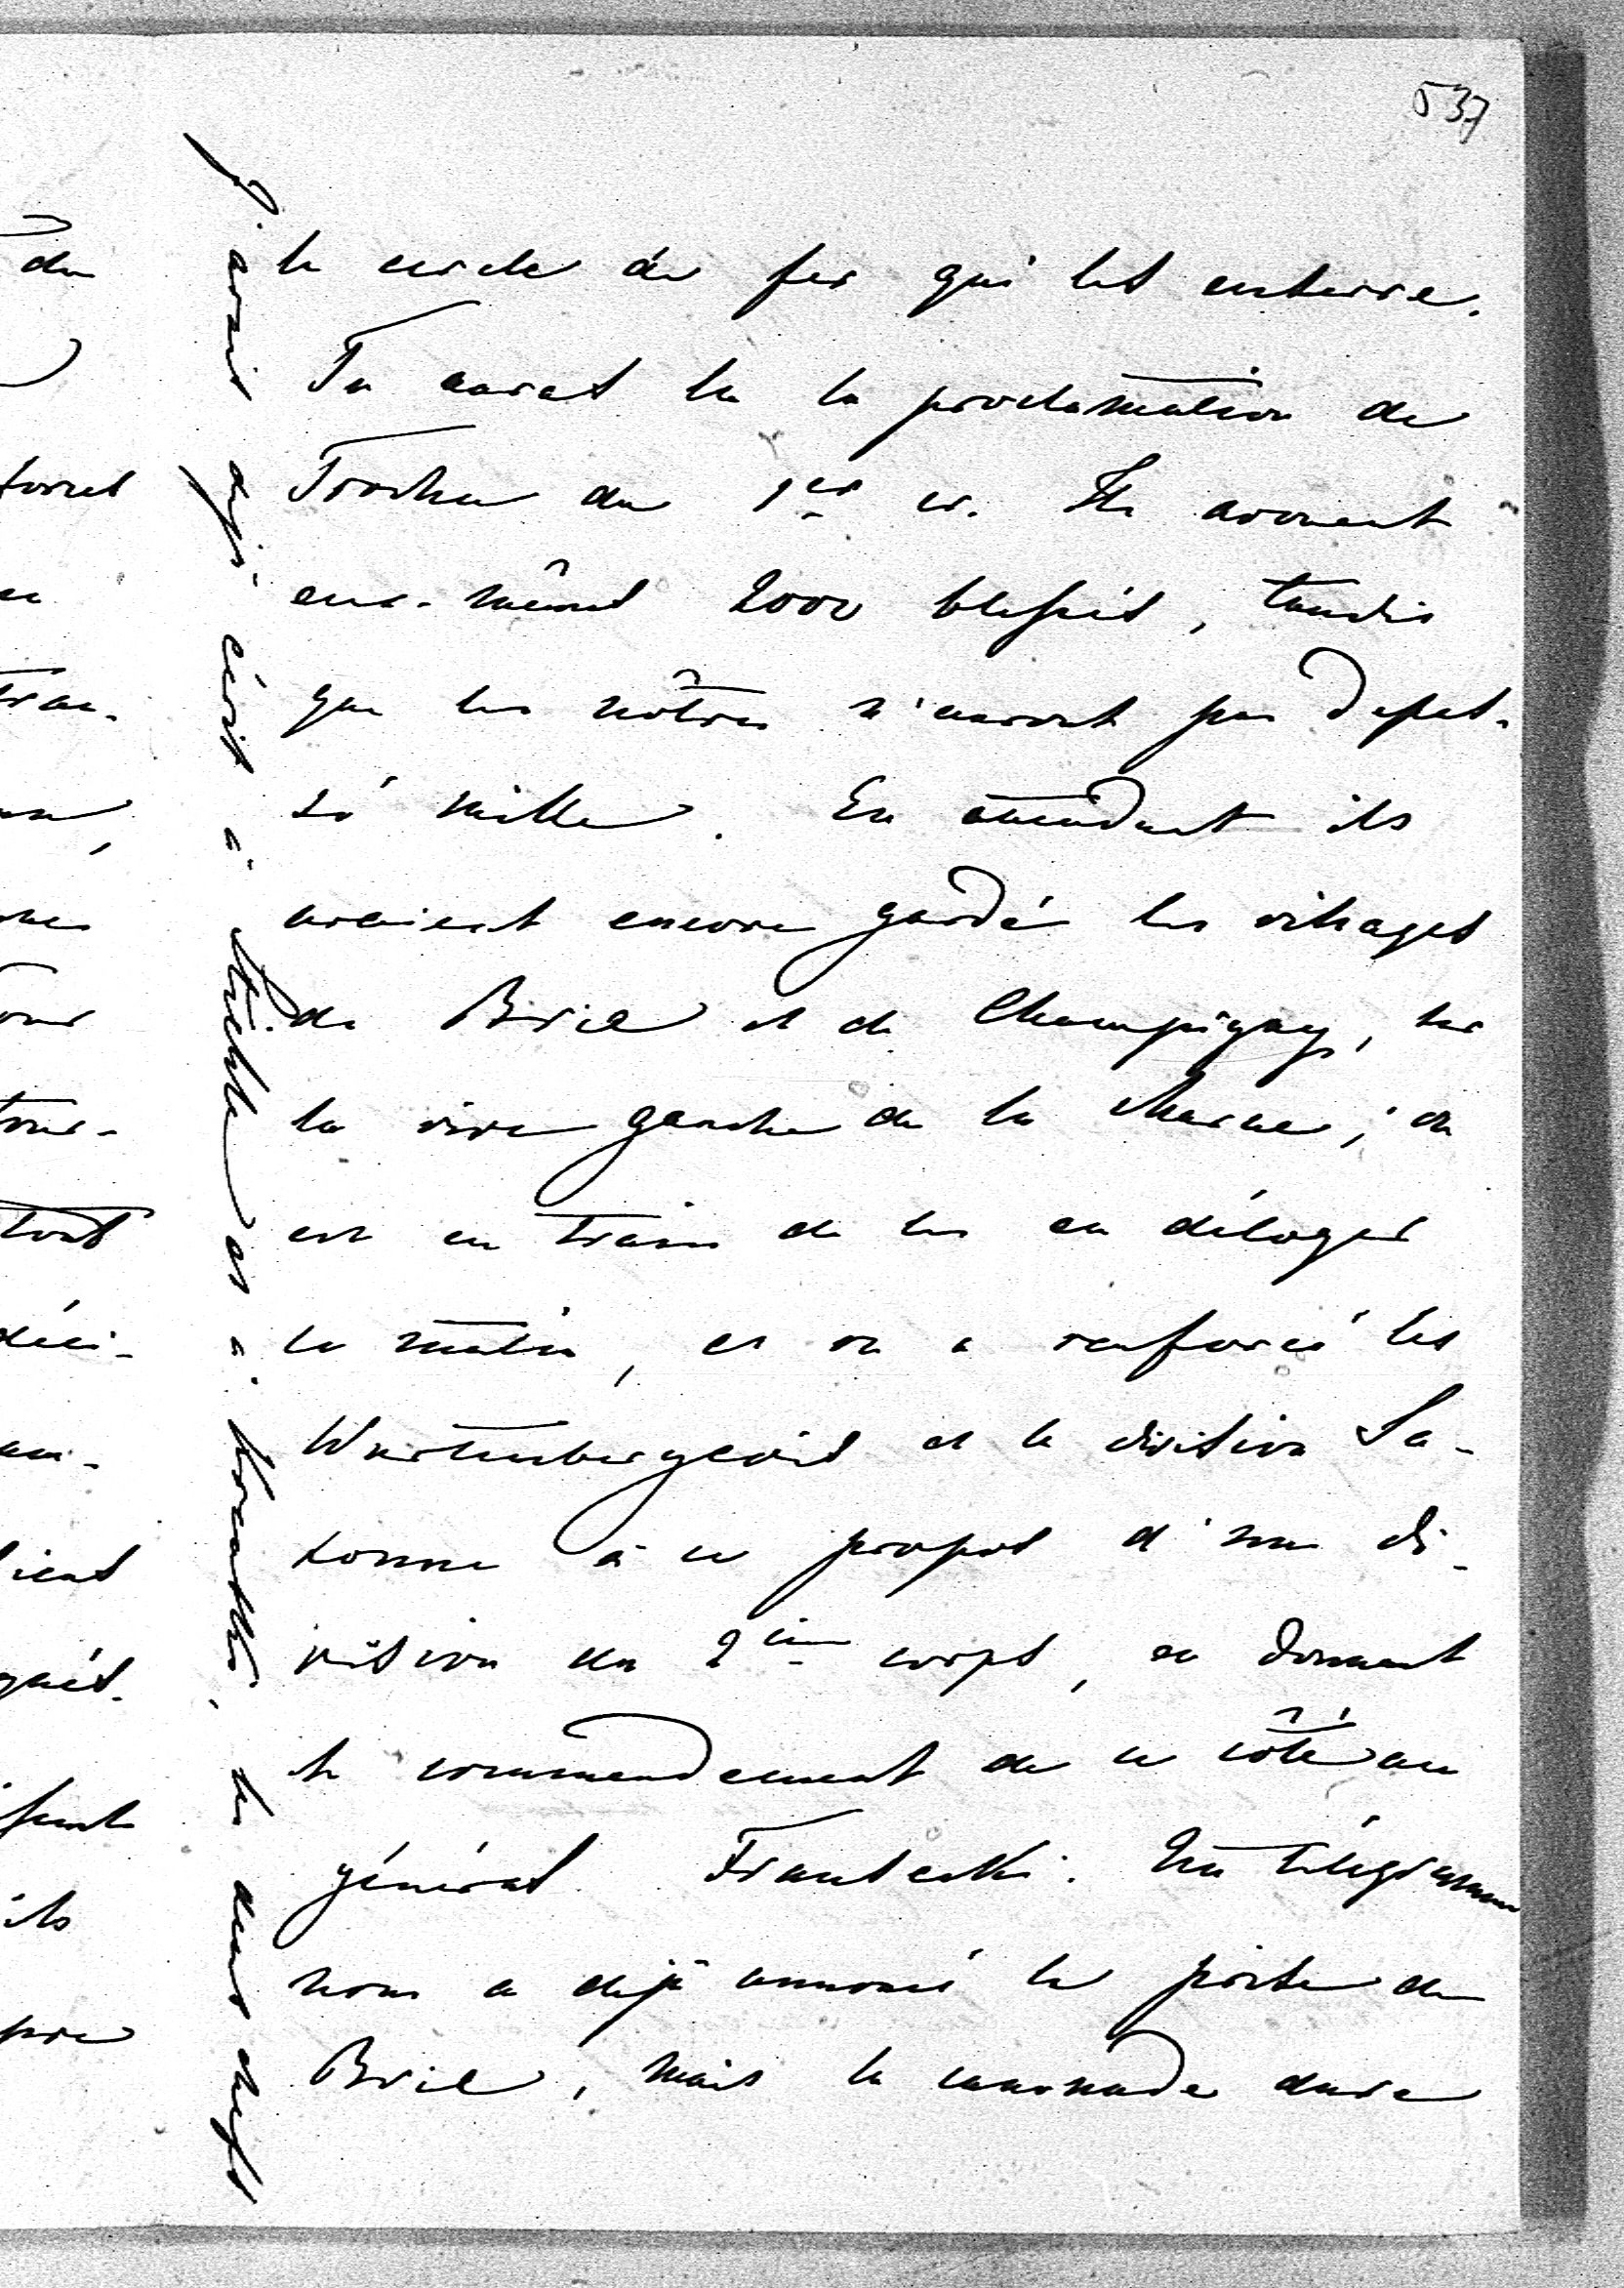 537
le cercle de fer qui les enserre.
Tu auras lu la proclamation de
Trochu du 1er cr. Ils avouent
eux-mêmes 2000 blessés, tandis
que les nôtres n'auront pas dépas-
sé mille. En attendant ils
avaient encore gardé les villages
de Brie et de Champigny, sur
la rive gauche de la Marne; on
est en train de les en déloger
ce matin, et on a renforcé les
Wurtembergeois et la division Sa-
xonne à ce propos d'une di-
vision du 2ième corps, en donnant
le commendement de ce côté au
général Fransecki. Un télégramme
nous a déjà annoncé la prise de
Brie, mais la canonade dure
J'avais déjà écrit à Stiehle et à
les deux chefs
du
tout
ils